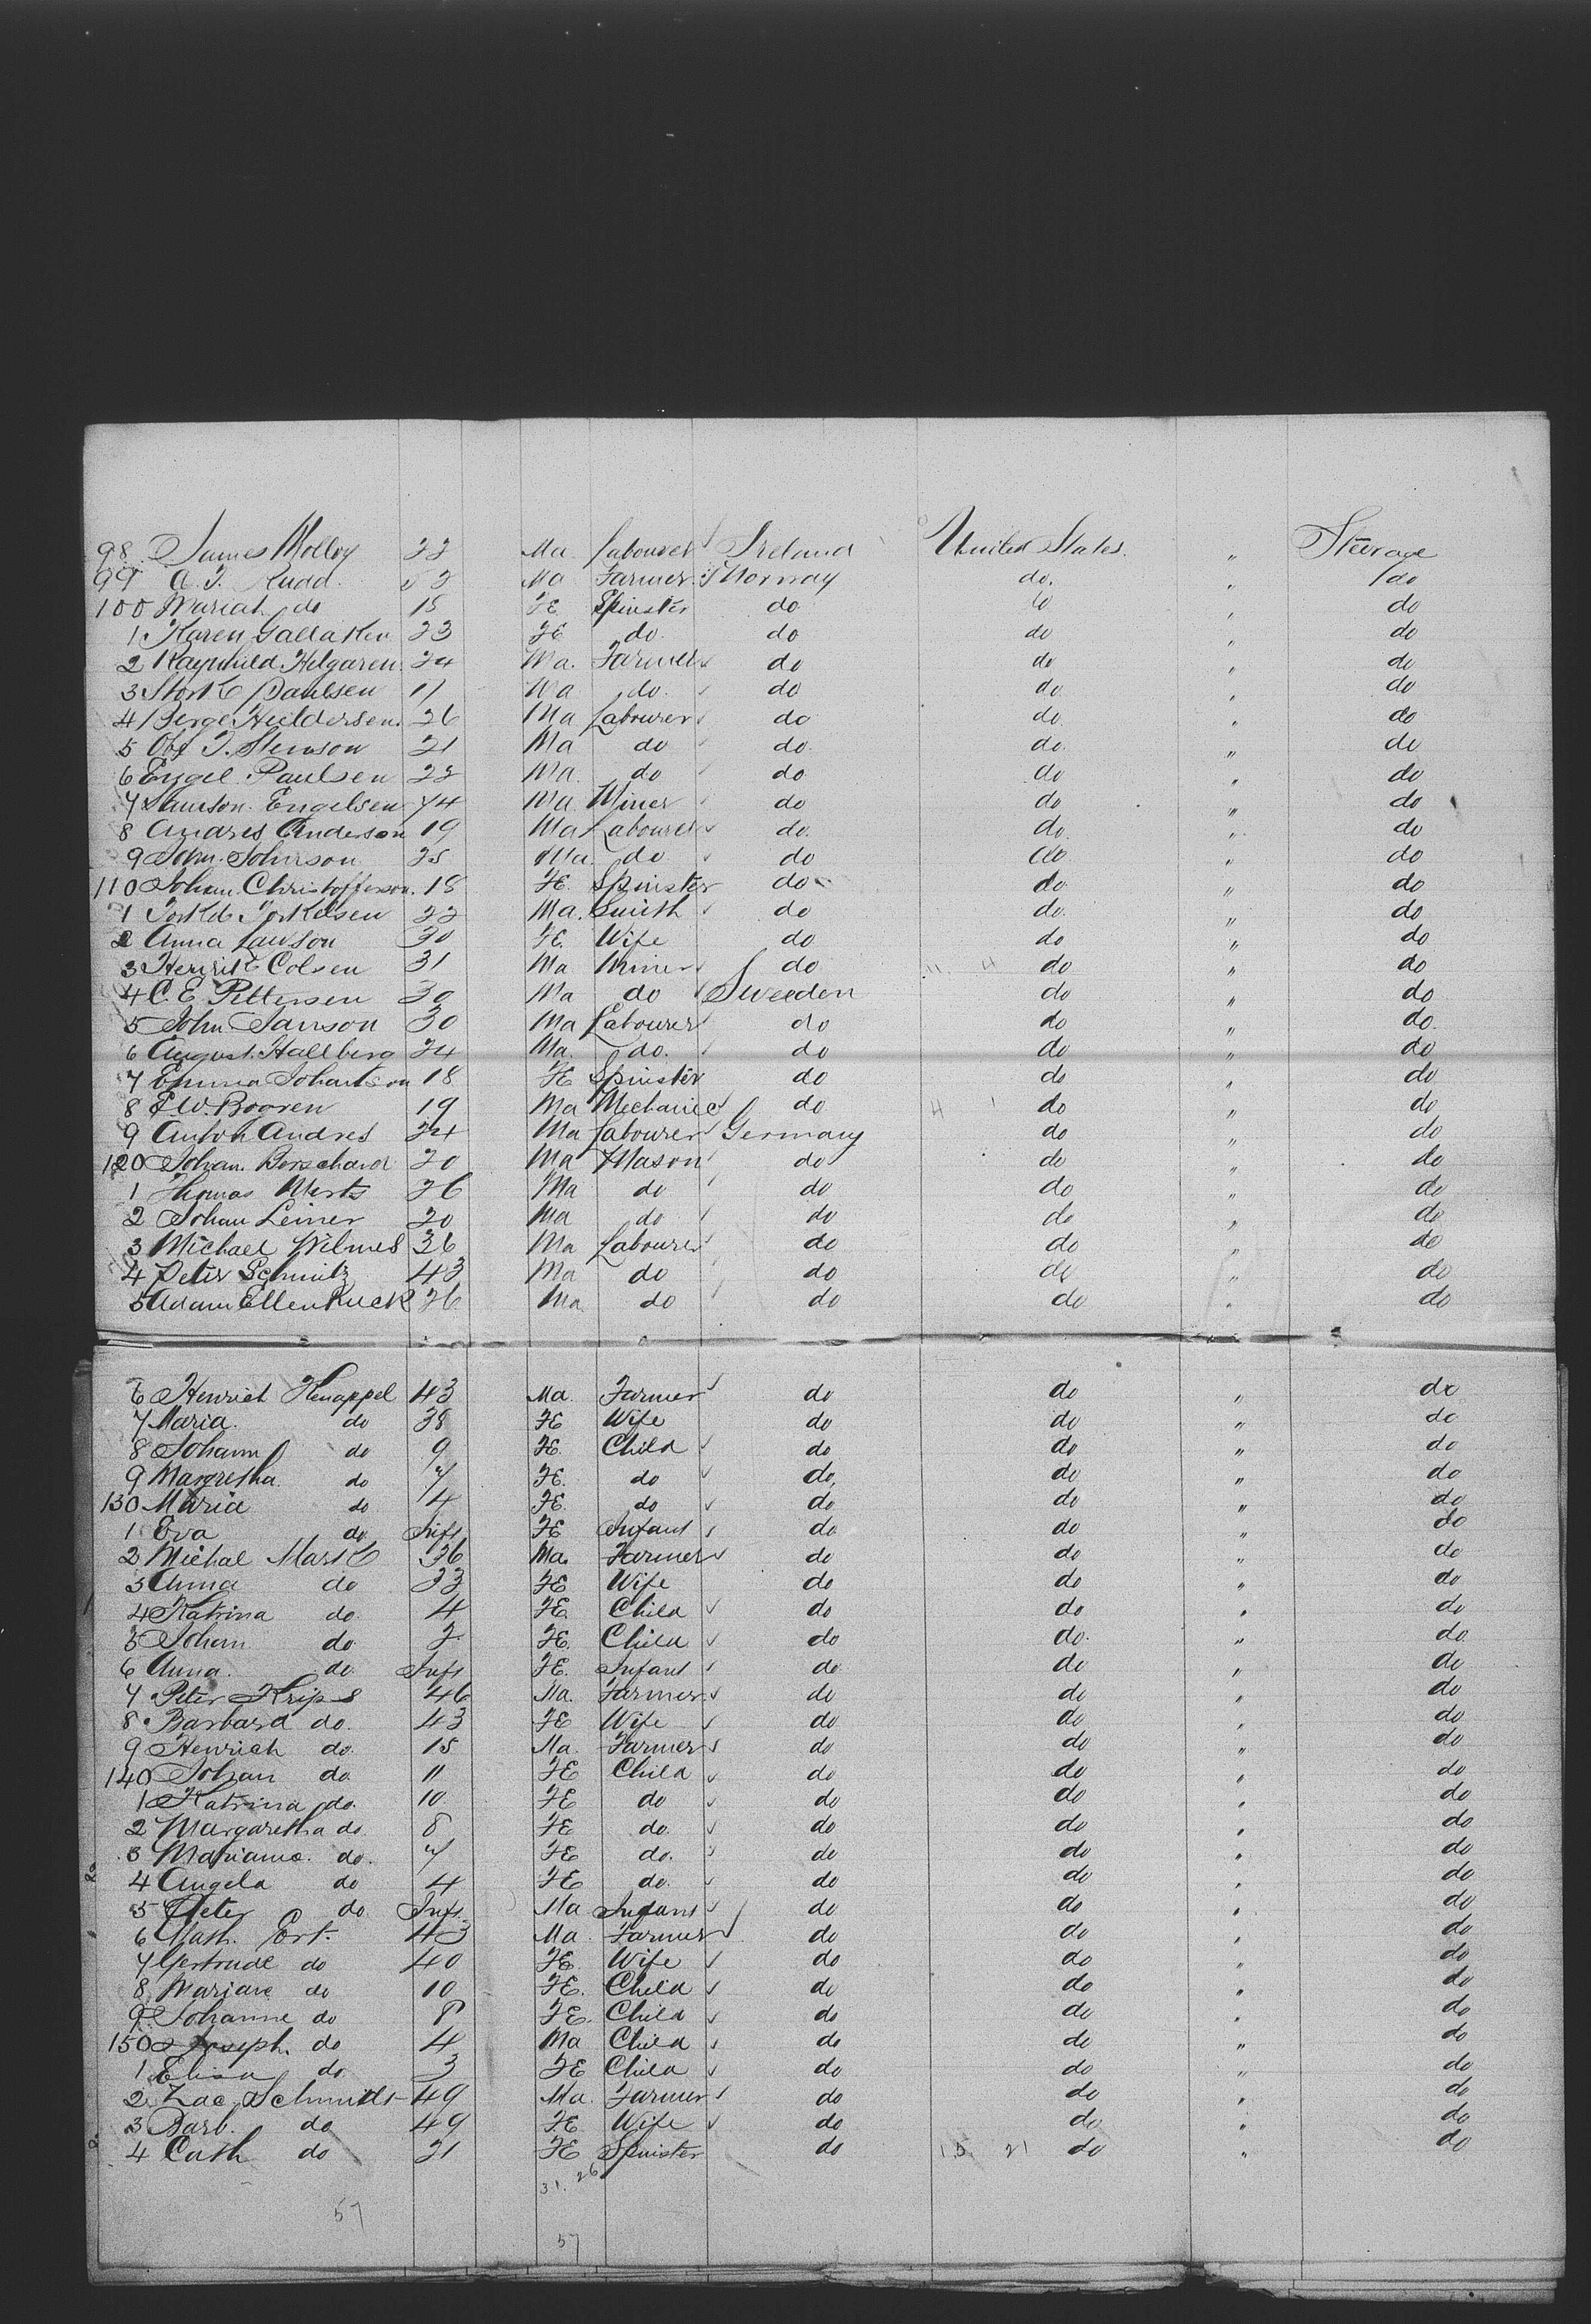 98 James Molloy 22 Ma Labourer Ireland United States. " Steerage
99 A. T. Rudd. 52 Ma Farmer Norway do. " do
100 Mariah do 18 FE Spinster do do " do
1 Karen 23 FE do. do do " do
2 Helgaren 24 Ma. Farmer do do " do
3 Paulsen 17 Ma do. do do " do
4 Berge 26 Ma Labourer do do " do
5 21 Ma do do do. " do
6 Engel Paulsen 22 Ma. do do do " do
7 Engelsen 44 Ma. Miner do do " do
8 Andres Anderson 19 Ma Labourer do. do. " do
9 John. Johnson 25 Ma. do do do " do
110 Johan. Christofferson. 18 FE. Spinster do do " do
1 Torkelsen 22 Ma. Smith do do. " do
2 Anna Lawson 30 FE. Wife do do " do
3 Colsen 31 Ma Miner do 11 4 do " do
4 C. E. Pettersen 30 Ma do Sweeden do " do
5 John 30 Ma Labourer do do " do.
6 August. Hallberg 24 Ma. do. do do " do
7 Emma 18 FE Spinster do do " do
8 F. W. Booren 19 Ma Mechanic do 4 1 do " do
9 Anton Andres 24 Ma Labourer Germany do " do
120 Johan. 20 Ma Mason do do " do
1 Thomas Merts 26 Ma do do do " do
2 Johan Leiner 20 Ma do do do " do
3 Michael Wilmes 36 Ma Labourer do do " do
4 Peter Schmitz 43 Ma do do do " do
5 Adam Ellenkuck 26 Ma do do do " do
6 Henrich Knappel 43 Ma. Farmer do do " do
7 Maria. do 38 FE Wife do do " do
8 Johann do 9 FE. Child do do " do
9 Margretha do 7 FE. do do, do " do
130 Maria do 4 FE. do do do " do
1 Eva do Inft FE Infant do do " do
2 Michal Mark 36 Ma. Farmer do do " do
3 Anna do 33 FE Wife do do " do
4 Katrina do. 4 FE. Child do do " do
5 Johan do. 2 FE. Child do do. " do
6 Anna. do. Inft FE. Infant do do " do
7 Peter Krips 46 Ma. Farmer do do " do
8 Barbara do. 43 FE Wife do do " do
9 Henrich do. 15 Ma. Farmer do do " do
140 Johan do. 11 FE Child do do " do
1 Katrina do. 10 FE do do do " do
2 Margaretha do 8 FE do. do do " do
3 do. 7 FE do. do do " do
4 Angela do 4 FE do. do do " do
5 Peter do Inft Ma Infant do do " do
6 Math. Port. 43 Ma. Farmer do do " do
7 Gertrude do 40 FE. Wife do do " do
8 Mariane do 10 FE. Child do do " do
9 Johanne do 8 FE. Child do do " do
150 Joseph. do 4 Ma Child do do " do
1 Elisa do 3 FE Child do do " do
2 Zac. Schmidt 49 Ma. Farmer do do " do
3 Barb. do 49 FE Wife do do " do
4 Cath do 21 FE Spinster do 15 21 do " do
31. 26
57
57